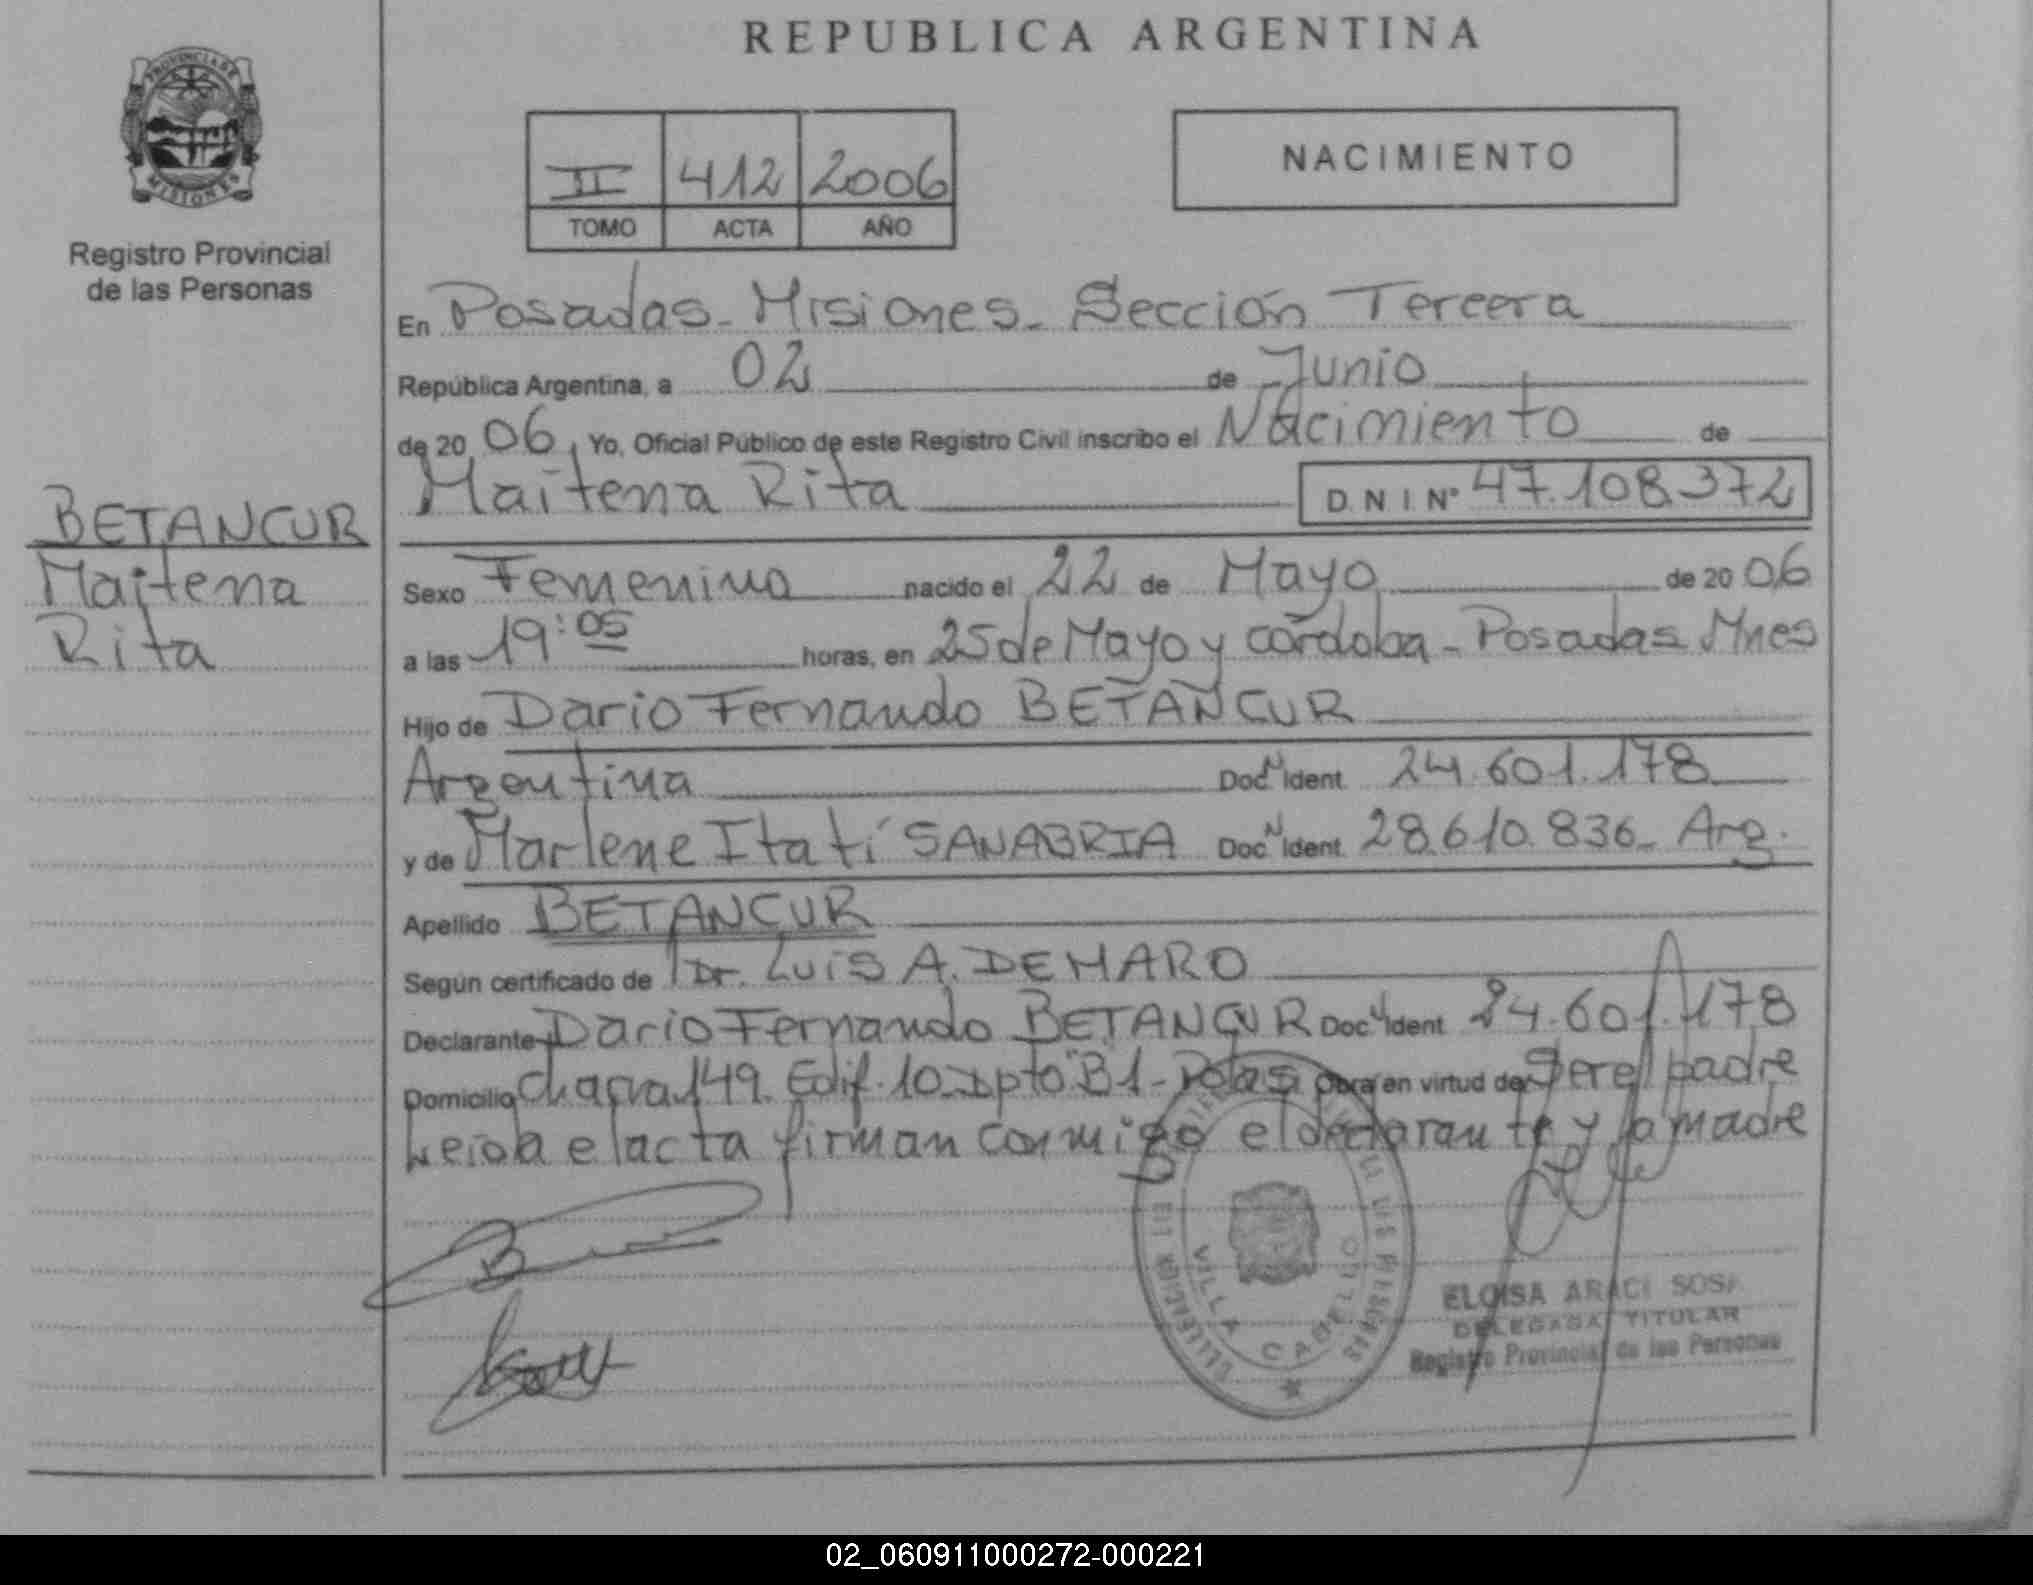 REPUBLICA ARGENTINA
PROVINCIA DE
MISIONES
Registro Provincial
de las Personas
II 412 2006
TOMO ACTA AÑO
NACIMIENTO
BETANCUR
Maitena
Rita
En Posadas - Misiones - Sección Tercera
República Argentina, a 02 de Junio
de 2006, Yo, Oficial Público de este Registro Civil inscribo el Nacimiento de
Maitena Rita D.N.I Nº 47.108.372
Sexo Femenino nacido el 22 de Mayo de 2006
a las 19:05 horas, en 25 de Mayo y Córdoba - Posadas Mnes
Hijo de Dario Fernando BETANCUR
Argentina Doc N Ident. 24.601.178
y de Marlene Itatí SANABRIA Doc N Ident. 28.610.836 - Arg.
Apellido BETANCUR
Según certificado de Dr. Luis A. DEMARO
Declarante Dario Fernando BETANCUR Doc N Ident 24.601.178
Domicilio Chacra 149. Edif. 10 - Dpto "B1 - Pdas Obra en virtud de Ser el padre
Leida el acta firman conmigo el declarante y la madre
VILLA CABELLO
ELOISA ARACI SOSA
DELEGADA TITULAR
Registro Provincial de las Personas
02_060911000272-000221